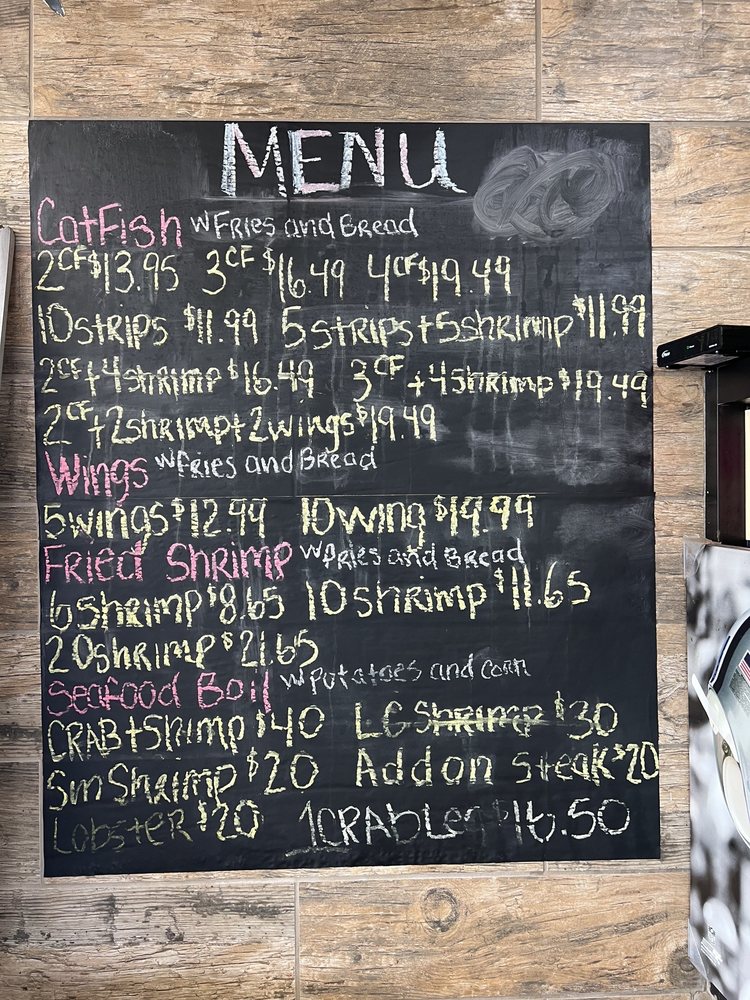 MENU
CatFish w Fries and Bread
2CF $13.95 3CF $16.49 4CF $19.49
10 strips $11.99 5 strips + 5 shrimp $11.99
2CF + 4 shrimp $16.49 3CF + 4 shrimp $19.49
2CF + 2 shrimp + 2 wings $19.49
Wings w Fries and Bread
5 wings $12.99 10 wing $19.99
Fried Shrimp w Fries and Bread
6 shrimp $8.65 10 shrimp $11.65
20 shrimp $21.65
Seafood Boil w Potatoes and corn
CRAB + Shrimp $40 LG Shrimp $30
Sm Shrimp $20 Add on Steak $20
Lobster $20 1 CRAB Leg $16.50